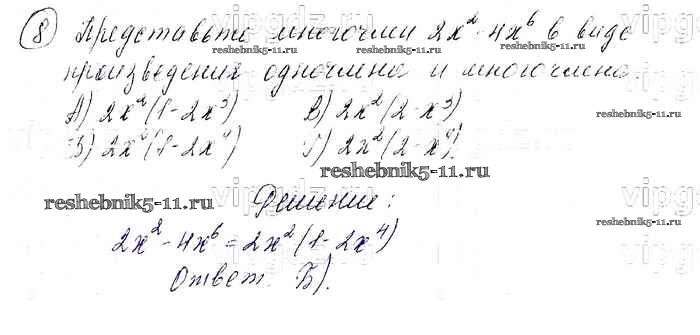 8) Представьте многочлен 2x² - 4x⁶ в виде
произведения одночлена и многочлена.
А) 2x²(1-2x³) В) 2x²(2-x³)
Б) 2x²(1-2x⁴) Г) 2x²(2-x⁴).
Решение:
2x² - 4x⁶ = 2x²(1-2x⁴)
Ответ. Б).
reshebnik5-11.ru
reshebnik5-11.ru
reshebnik5-11.ru
reshebnik5-11.ru
reshebnik5-11.ru
reshebnik5-11.ru